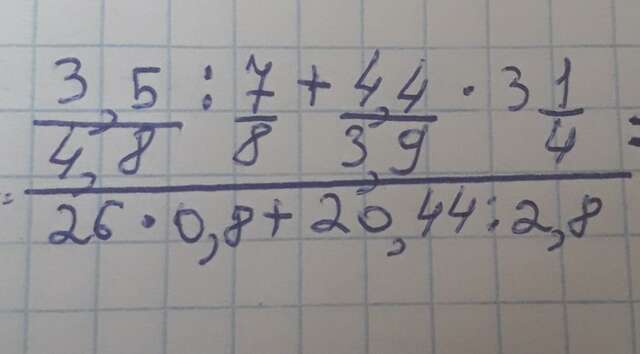 = \frac{\frac{3,5}{4,8} : \frac{7}{8} + \frac{4,4}{3,9} \cdot 3\frac{1}{4}}{26 \cdot 0,8 + 20,44 : 2,8} =